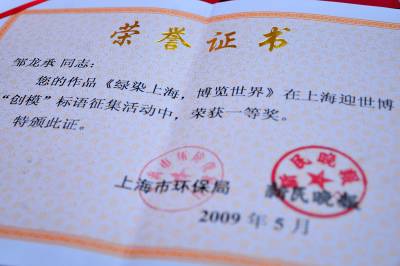 荣誉证书
邹龙承 同志：
您的作品《绿染上海，博览世界》在上海迎世博
“创模”标语征集活动中，荣获一等奖。
特颁此证。
上海市环保局 新民晚报
2009 年 5 月